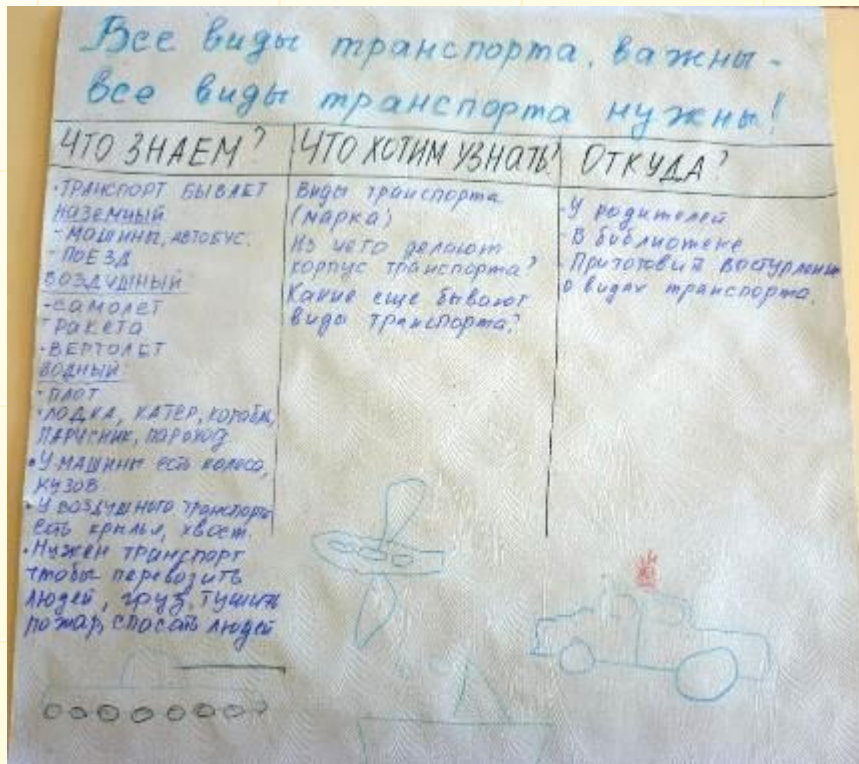 Все виды транспорта важны -
все виды транспорта нужны!
ЧТО ЗНАЕМ?
•ТРАНСПОРТ БЫВАЕТ
НАЗЕМНЫЙ
-МАШИНЫ, АВТОБУС.
-ПОЕЗД
ВОЗДУШНЫЙ
-САМОЛЕТ
-РАКЕТА
-ВЕРТОЛЕТ
ВОДНЫЙ
-ПЛОТ
-ЛОДКА, КАТЕР, корабль,
ПАРУСНИК, ПАРОХОД
•У МАШИНЫ есть колеса,
КУЗОВ
•У ВОЗДУШНОГО транспорта
есть крылья, хвост.
•Нужен транспорт
чтобы перевозить
людей, груз, тушить
пожар, спасать людей
ЧТО ХОТИМ УЗНАТЬ?
Виды транспорта
(марка)
Из чего делают
корпус транспорта?
Какие еще бывают
виды транспорта?
ОТКУДА?
-У родителей
-В библиотеке
-Приготовит выступление
о видах транспорта.